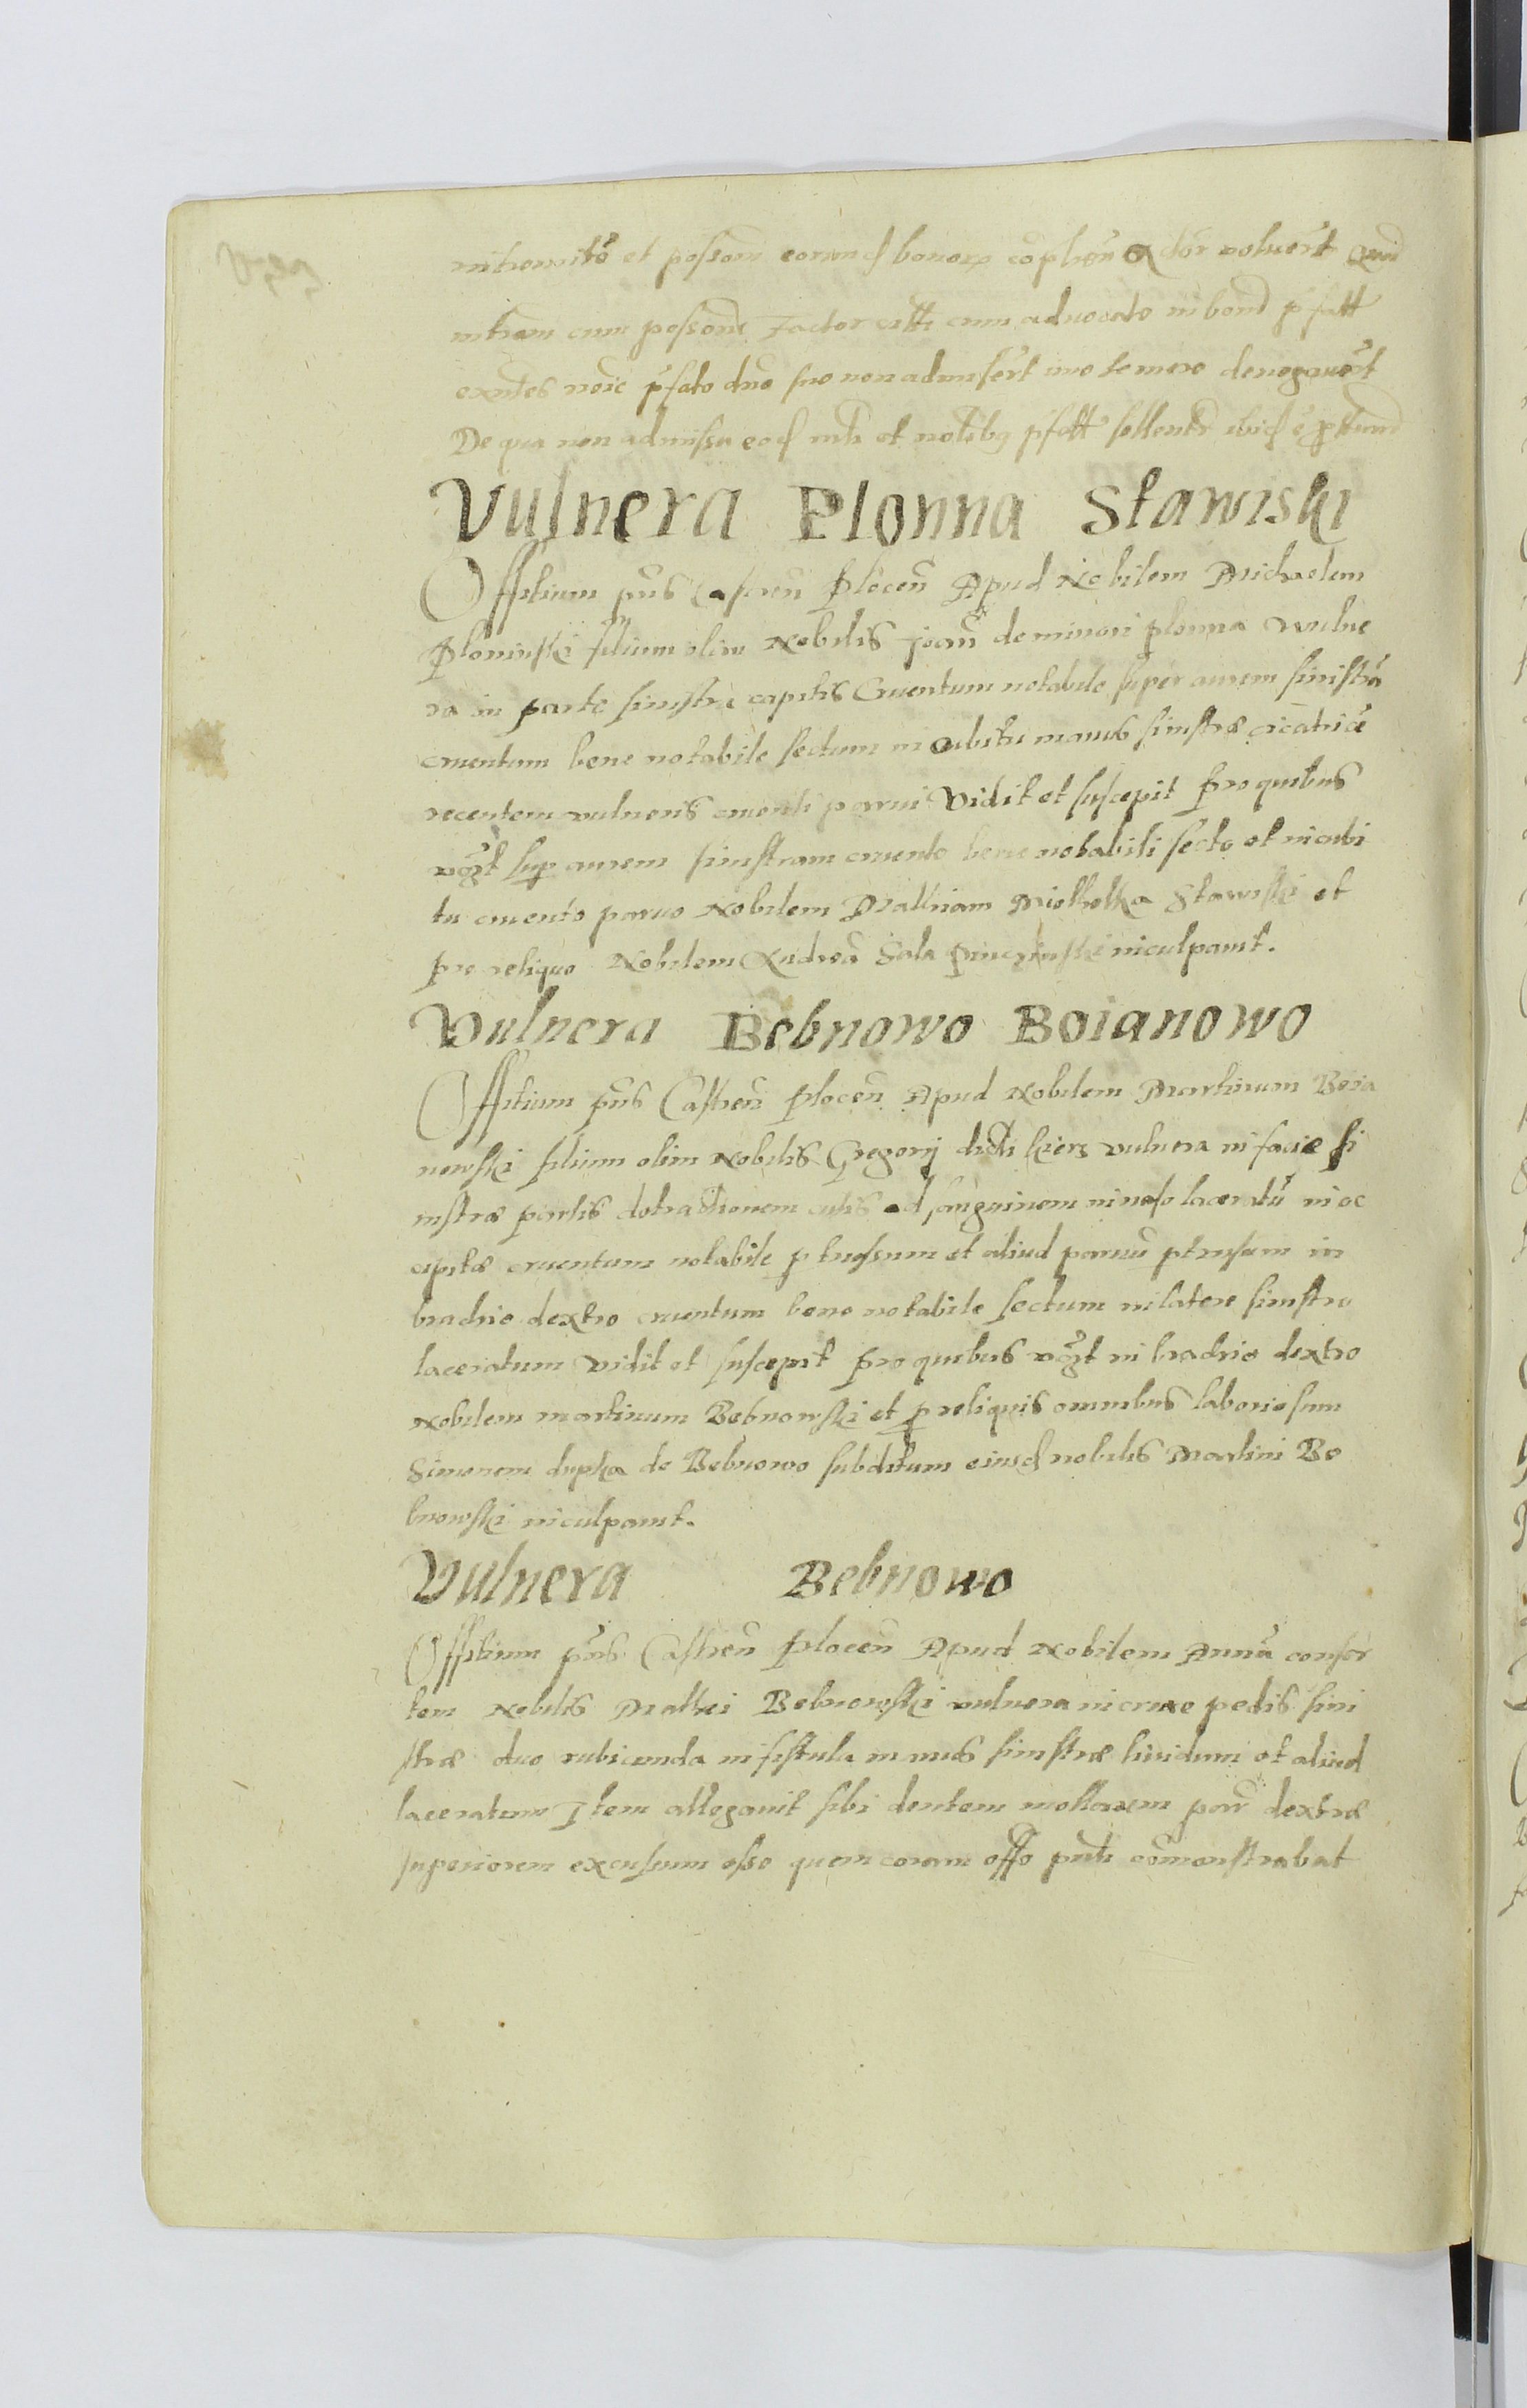 et possom eorund bonorp voluert
cum possone Factor cum advocato in bona pfatt
exntes pfato dno suo non admisert imo temere denegavert
De qua non admissa eod mh et notibq pfatt ibid
Vulnera Plonna Stawiski
Offitium pns Castren Plocen Apud Nobilem Michaelem
Ploninski filium olim Nobilis Joan de minori plonna Vulne
ra in parte sinistra capitis Cruentum notabile super aurem sinistra
cruentum bene notabile sectum in cubitu manus sinistræ cicatrice
recentem vulneris cruenti parui Vidit et suscepit Pro quibus
vczt sup aurem sinistram cruento bene notabili secto et in cubi
tu cruento paruo Nobilem Mathiam Miethelka Stawiski et
pro reliquo Nobilem Andrea Gala inculpauit.
Vulnera Bebnowo Boianowo
Offitium pns Castren Plocen Apud Nobilem Martinum Boia
nowski filium olim Nobilis Gregorij dicti kierz vulnera in facie si
nistræ partis detractionem cutis ad sanguinem in naso laceratu in oc
cipitæ cruentum notabile p tussum et aliud paruu ptusum in
brachio dextro cruentum bene notabile sectum in latere sinistro
laceratum vidit et suscepit Pro quibus vczt in brachio dextro
Nobilem martinum Bebnowski et p reliquis omnibus laboriosum
Simonem dupka de Bebnowo subditum eiusd nobilis Martini Be
bnowski inculpauit.
Vulnera Bebnowo
Offitium pns Castren Plocen Apud Nobilem Anna consor
tem Nobilis Mathei Bebnowski vulnera in crure pedis sini
stræ duo rubicunda in fistula manus sinistræ liuidum et aliud
laceratum Item allegauit sibi dentem mollarem par dextræ
superiorem excussum esse quem coram offo pnti comonstrabat